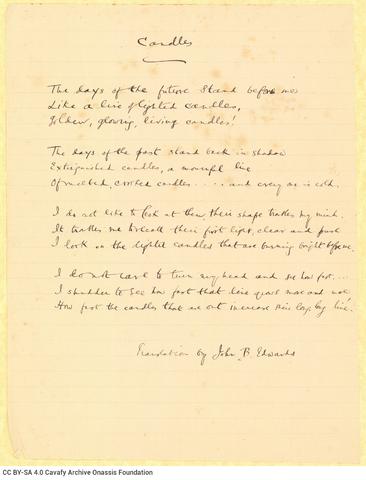 Candles
The days of the future stand before me
Like a line of lighted candles,
Golden, glowing, living candles!
The days of the past stand back in shadow
Extinguished candles, a mournful line
Of melted, crooked candles . . . . . and every one is cold.
I do not like to look at them, their shape troubles my mind.
It troubles me to recall their first light, clear and pure
I look on the lighted candles that are burning bright before me.
I do not care to turn my head and see how fast....
I shudder to see how fast that line grows more and more
How fast the candles that are out increase their long, long line!
Translation by John B. Edwards
CC BY-SA 4.0 Cavafy Archive Onassis Foundation